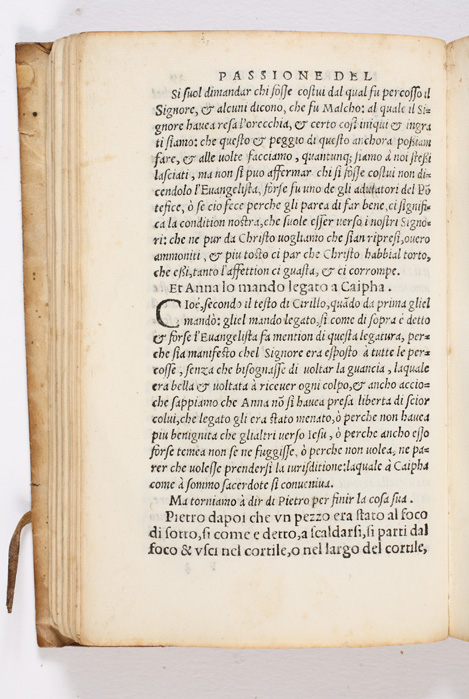 PASSIONE DEL
Si suol dimandar chi fosse costui dal qual fu percosso il
Signore, & alcuni dicono, che fu Malcho: al quale il Si-
gnore hauea resa l'orecchia, & certo cosi iniqui & ingra
ti siamo: che questo & peggio di questo anchora possiam
fare, & alle uolte facciamo, quantunq; siamo à noi stessi
lasciati, ma non si puo affermar chi si fosse costui non di-
cendolo l'Euangelista, forse fu uno de gli adulatori del Põ
tefice, ò se cio fece perche gli parea di far bene, ci signifi-
ca la condition nostra, che suole esser uerso i nostri Signo-
ri: che ne pur da Christo uogliamo che sian ripresi, ouero
ammoniti, & piu tosto ci par che Christo habbial torto,
che essi, tanto l'affettion ci guasta, & ci corrompe.
Et Anna lo mando legato a Caipha.
Cioè, secondo il testo di Cirillo, quãdo da prima gliel
mandò: gliel mando legato, si come di sopra è detto
& forse l'Euangelista fa mention di questa legatura, per-
che sia manifesto chel Signore era esposto à tutte le per-
cosse, senza che bisognasse di uoltar la guancia, laquale
era bella & uoltata à riceuer ogni colpo, & ancho accio-
che sappiamo che Anna nõ si hauea presa liberta di scior
colui, che legato gli era stato menato, ò perche non hauea
piu benignita che glialtri uerso Iesu, ò perche ancho esso
forse temea non se ne fuggisse, ò perche non uolea, ne pa-
rer che uolesse prendersi la iurisditione: laquale à Caipha
come à sommo sacerdote si conueniua.
Ma torniamo à dir di Pietro per finir la cosa sua.
Pietro dapoi che vn pezzo era stato al foco
di sotto, si come e detto, a scaldarsi, si parti dal
foco & vsci nel cortile, o nel largo del cortile,